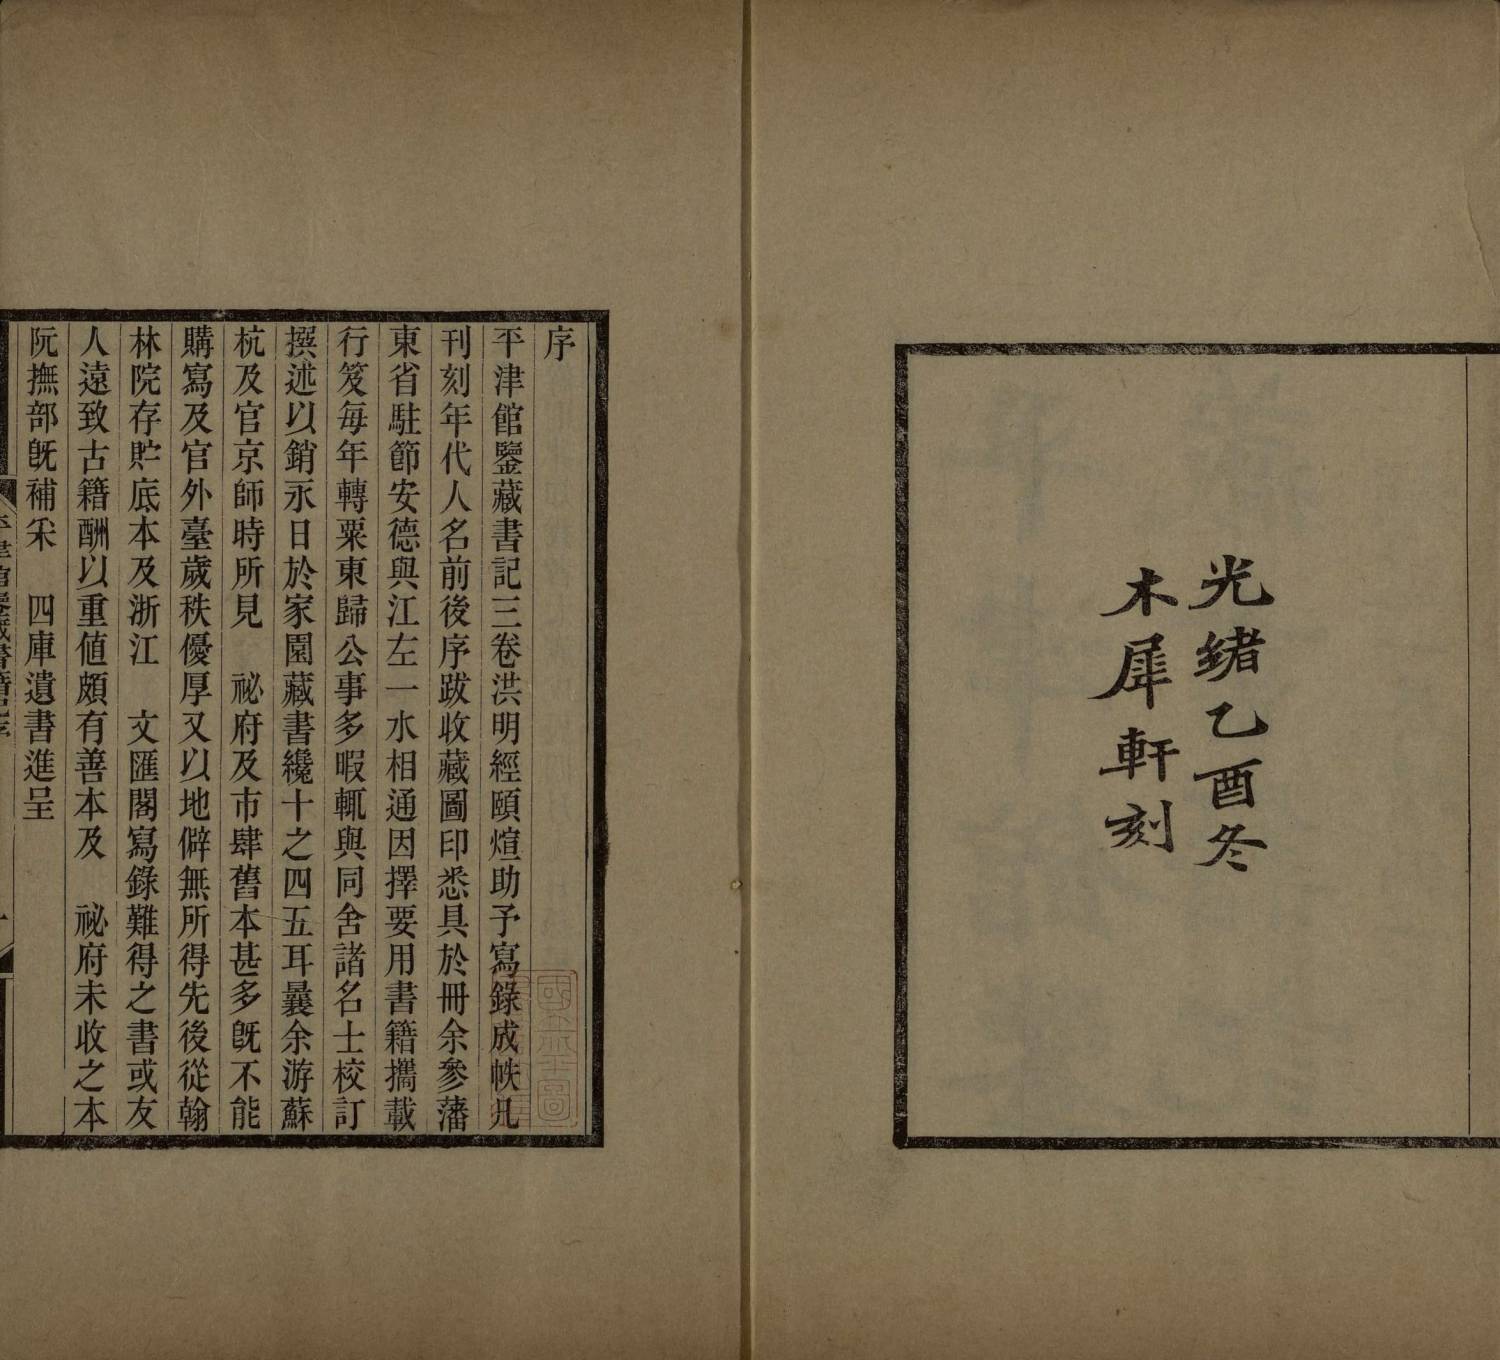 光緒乙酉冬
木犀軒刻
序
平津館鑒藏書記三卷洪明經頤煊助予寫錄成帙凡
刊刻年代人名前後序跋收藏圖印悉具於冊余參藩
東省駐節安德與江左一水相通因擇要用書籍攜載
行笈每年轉粟東歸公事多暇輒與同舍諸名士校訂
撰述以銷永日於家園藏書纔十之四五耳曩余游蘇
杭及官京師時所見　祕府及市肆舊本甚多旣不能
購寫及官外臺歲秩優厚又以地僻無所得先後從翰
林院存貯底本及浙江　文匯閣寫錄難得之書或友
人遠致古籍酬以重値頗有善本及　祕府未收之本
阮撫部旣補采　四庫遺書進呈